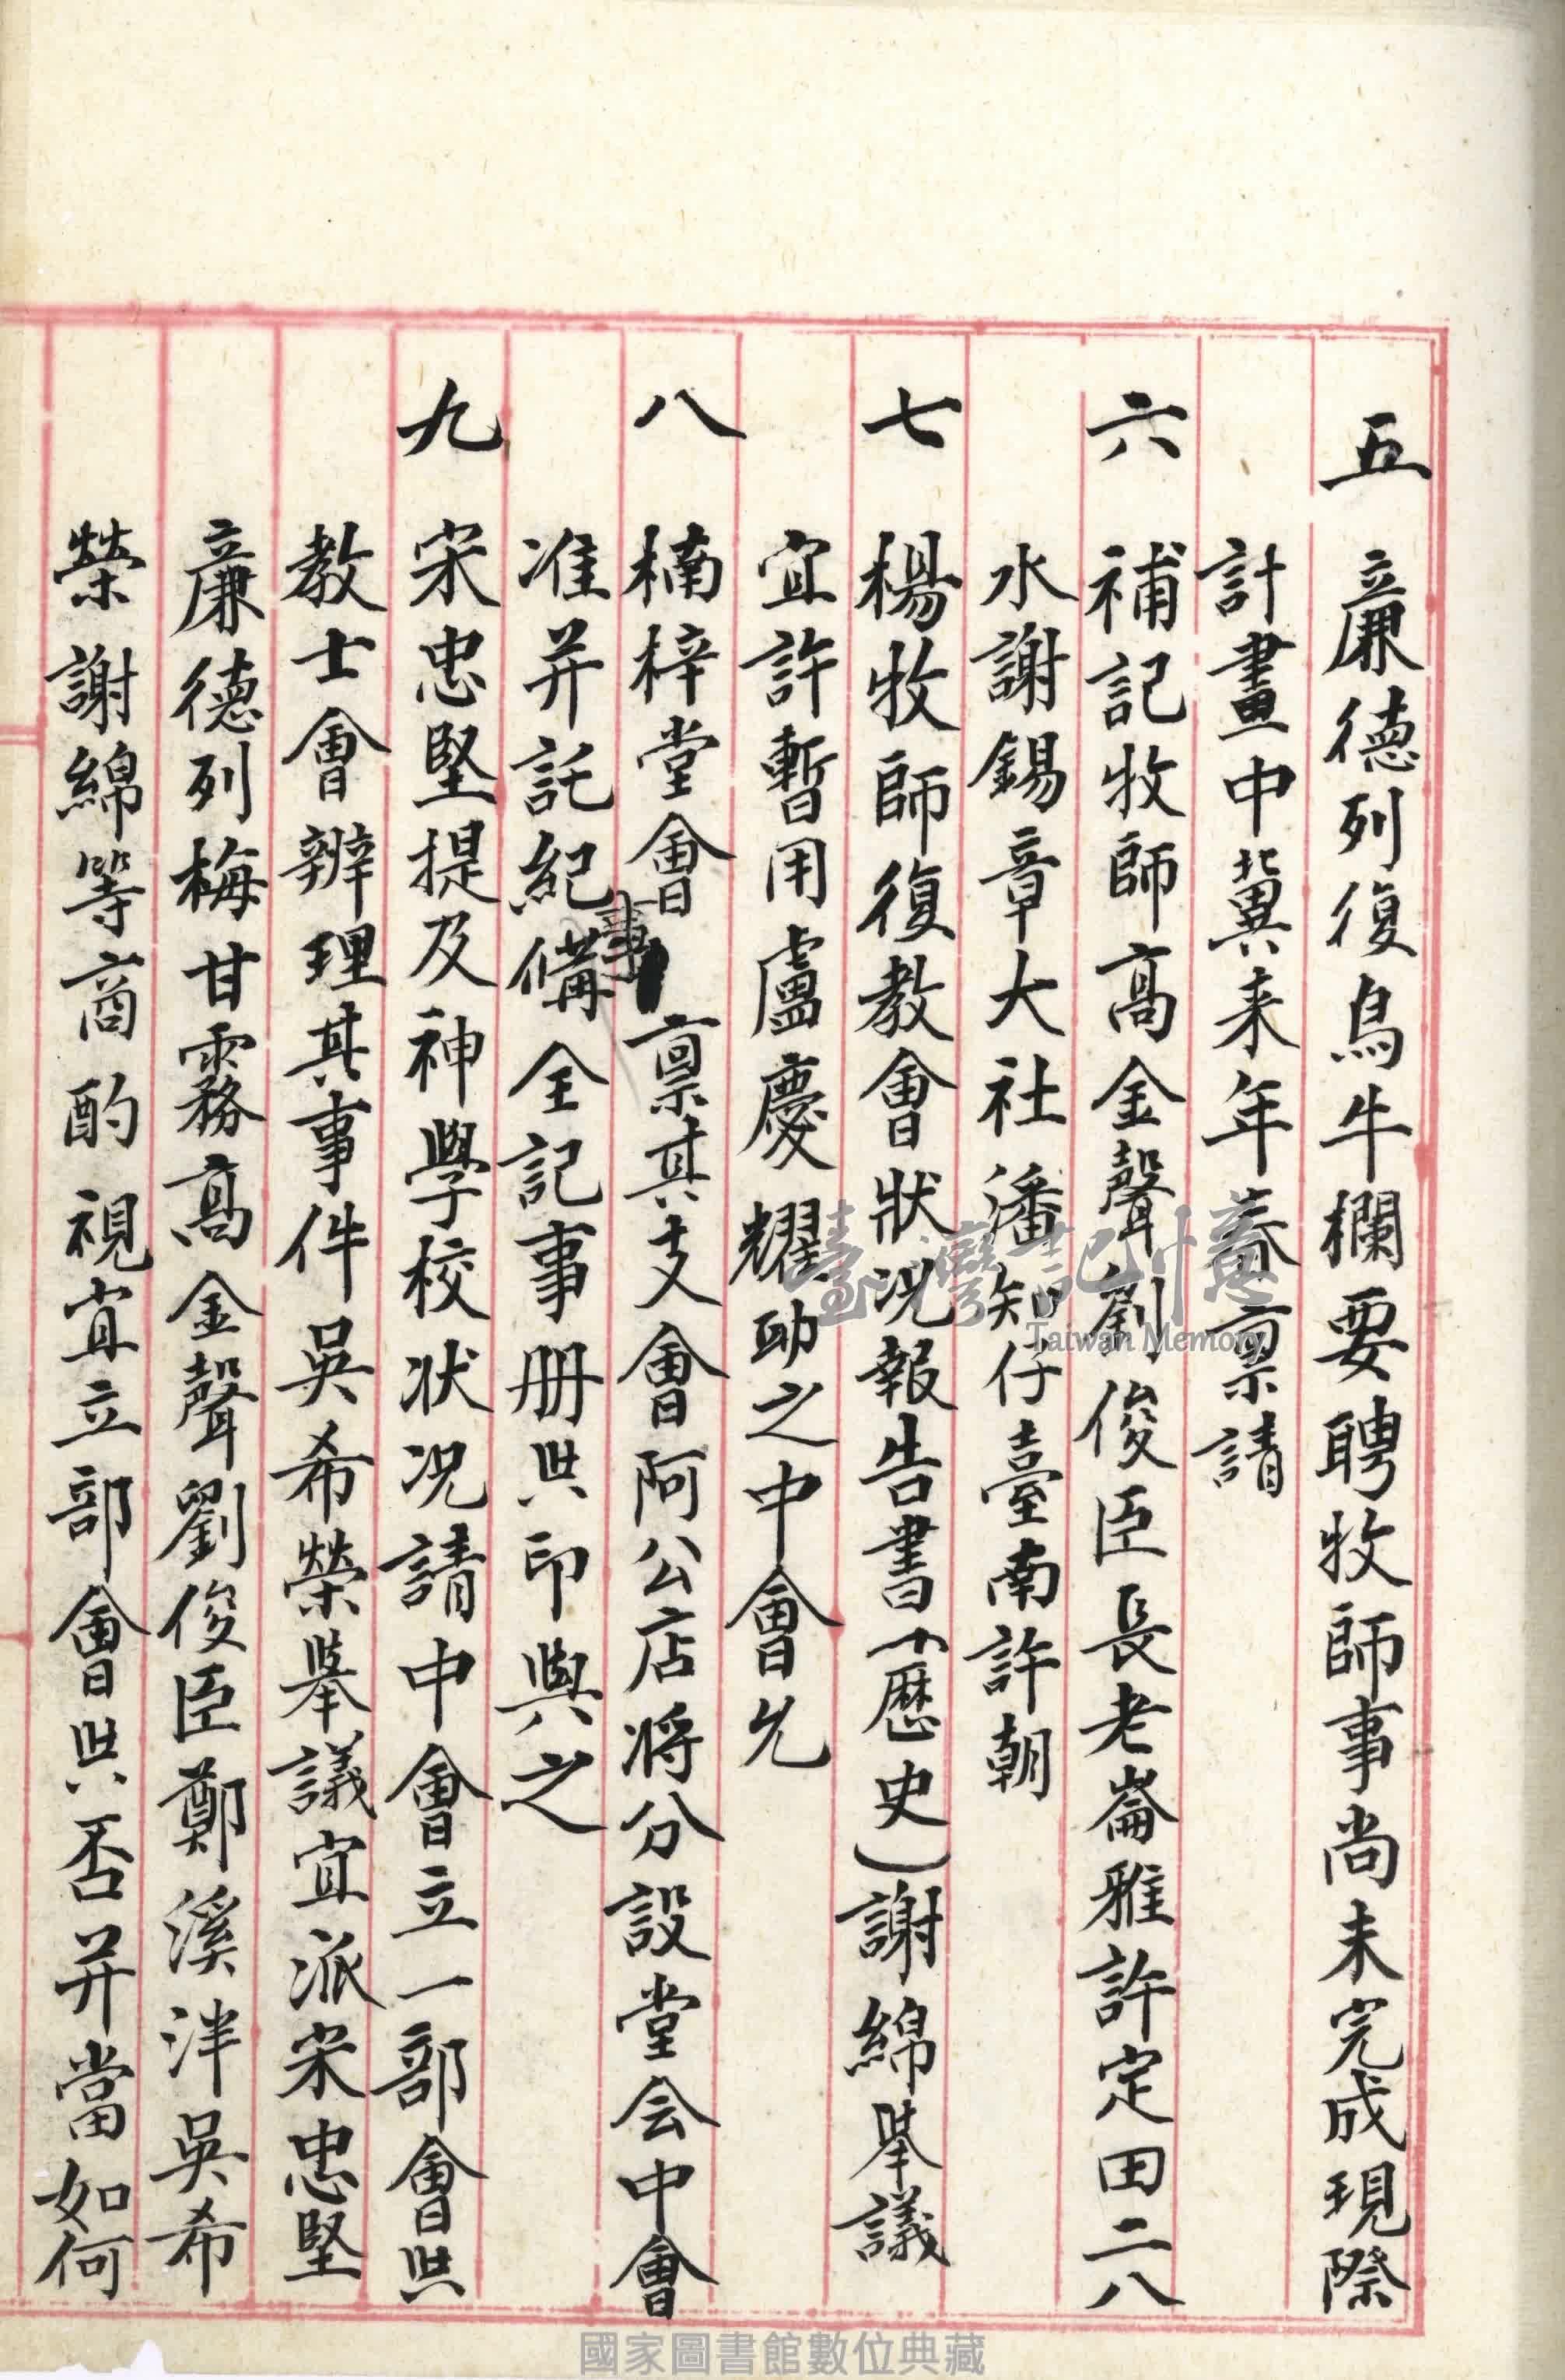 五 廉德列復烏牛欄要聘牧師事尚未完成現際
計畫中冀来年養禀請
六 補記牧師高金聲劉俊臣長老崙雅許定田二八
水謝錫章大社潘知仔臺南許朝
七 楊牧師復教會狀况報告書(歷史)謝綿举議
宜許暫用盧慶耀助之中會允
八 楠梓堂會禀其支會阿公店将分設堂会中會
准并託紀事備全記事册共印與之
九 宋忠堅提及神學校状况請中會立一部會共
教士會辦理其事件吳希榮舉議宜派宋忠堅
廉德列梅甘霧高金聲劉俊臣鄭溪泮吳希
榮謝綿等商酌視宜立部會共否并當如何
臺灣記憶
Taiwan Memory
國家圖書館數位典藏